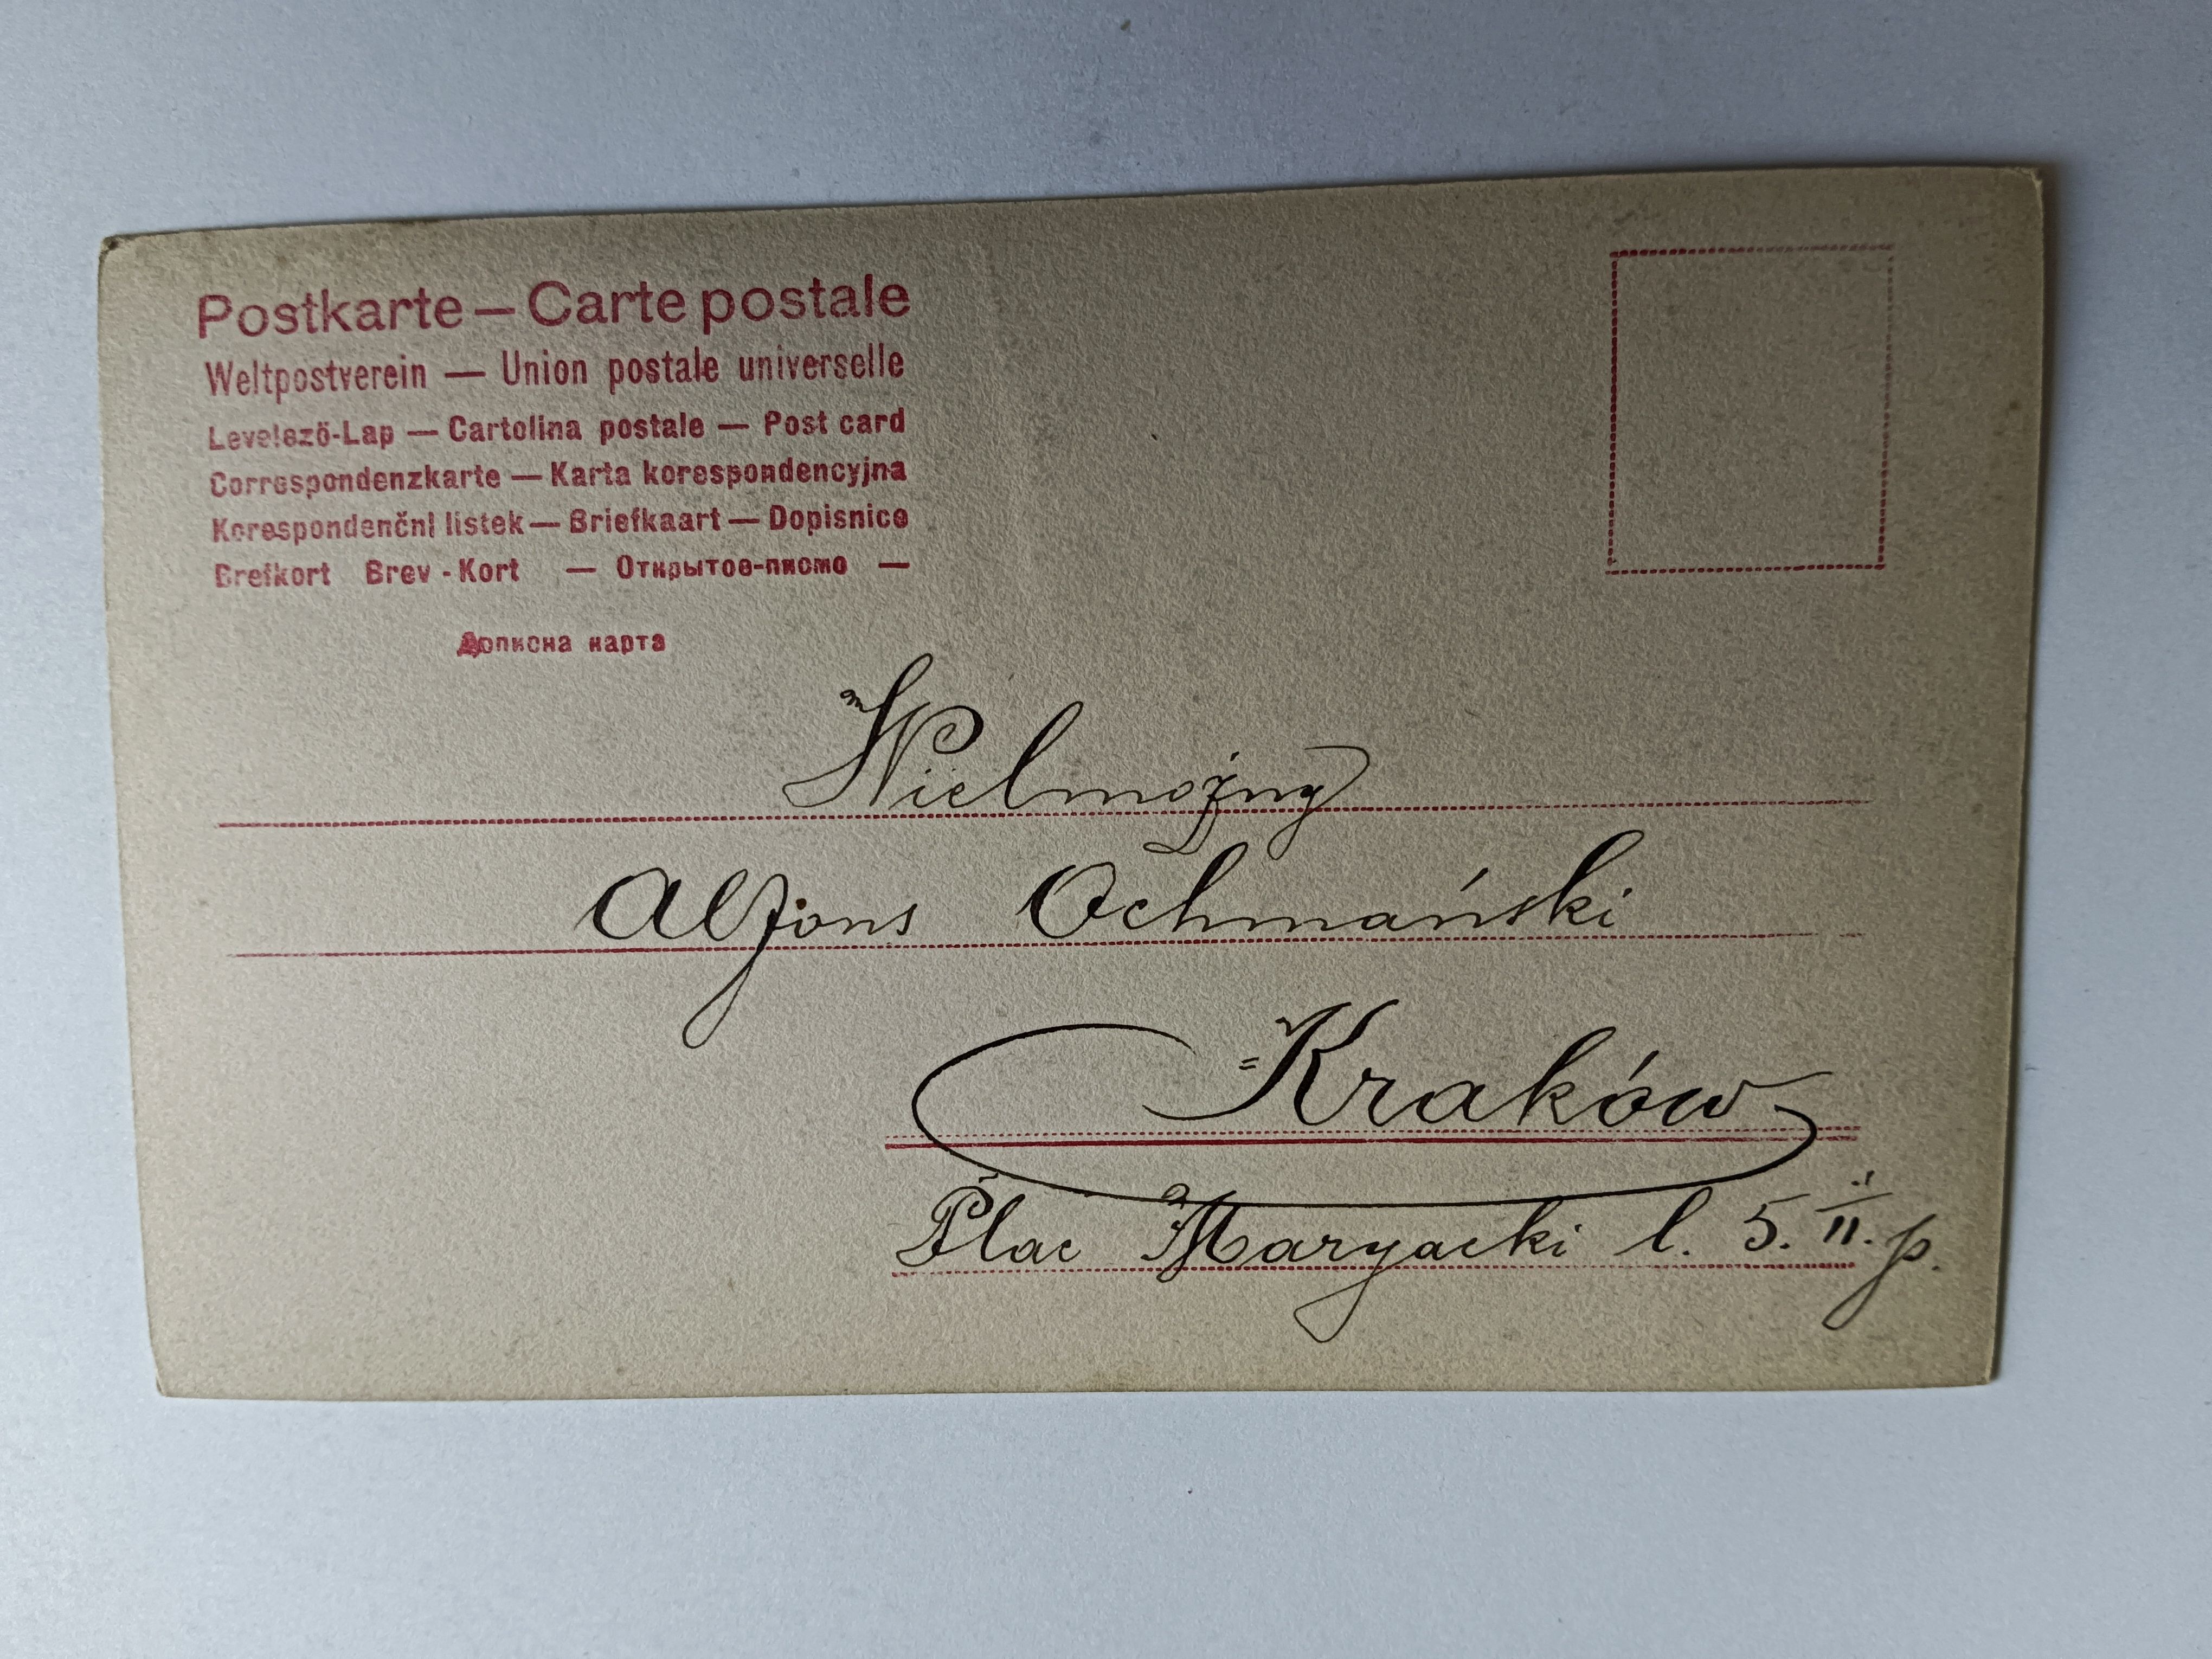 Postkarte — Carte postale
Weltpostverein — Union postale universelle
Levelező-Lap — Cartolina postale — Post card
Correspondenzkarte — Karta korespondencyjna
Korespondenční listek — Briefkaart — Dopisnice
Brefkort Brev-Kort — Открытое-писмо —
Дописна карта
Wielmożny
Alfons Ochmański
Kraków
Plac Maryacki l. 5. II. p.